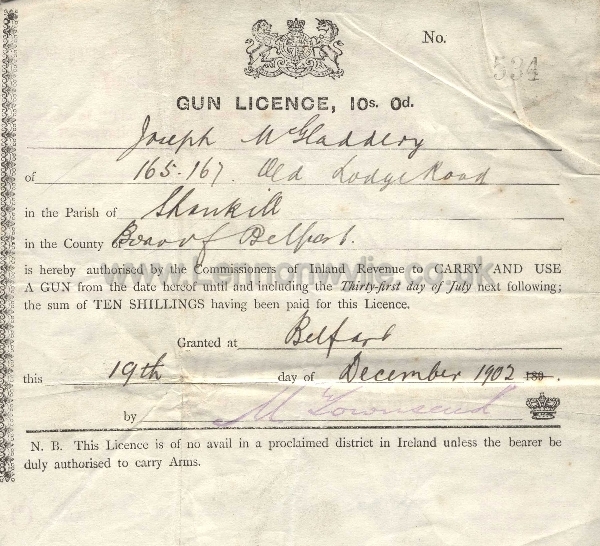 No. 534
GUN LICENCE, 10s. 0d.
Joseph McGladdery
of 165-167 Old Lodge Road
in the Parish of Shankill
in the County Boro of Belfast.
is hereby authorised by the Commissioners of Inland Revenue to CARRY AND USE
A GUN from the date hereof until and including the Thirty-first day of July next following;
the sum of TEN SHILLINGS having been paid for this Licence.
Granted at Belfast
this 19th day of December 1902 189 .
by M Townsend
N. B. This Licence is of no avail in a proclaimed district in Ireland unless the bearer be
duly authorised to carry Arms.
www.Lennonwylie.co.uk